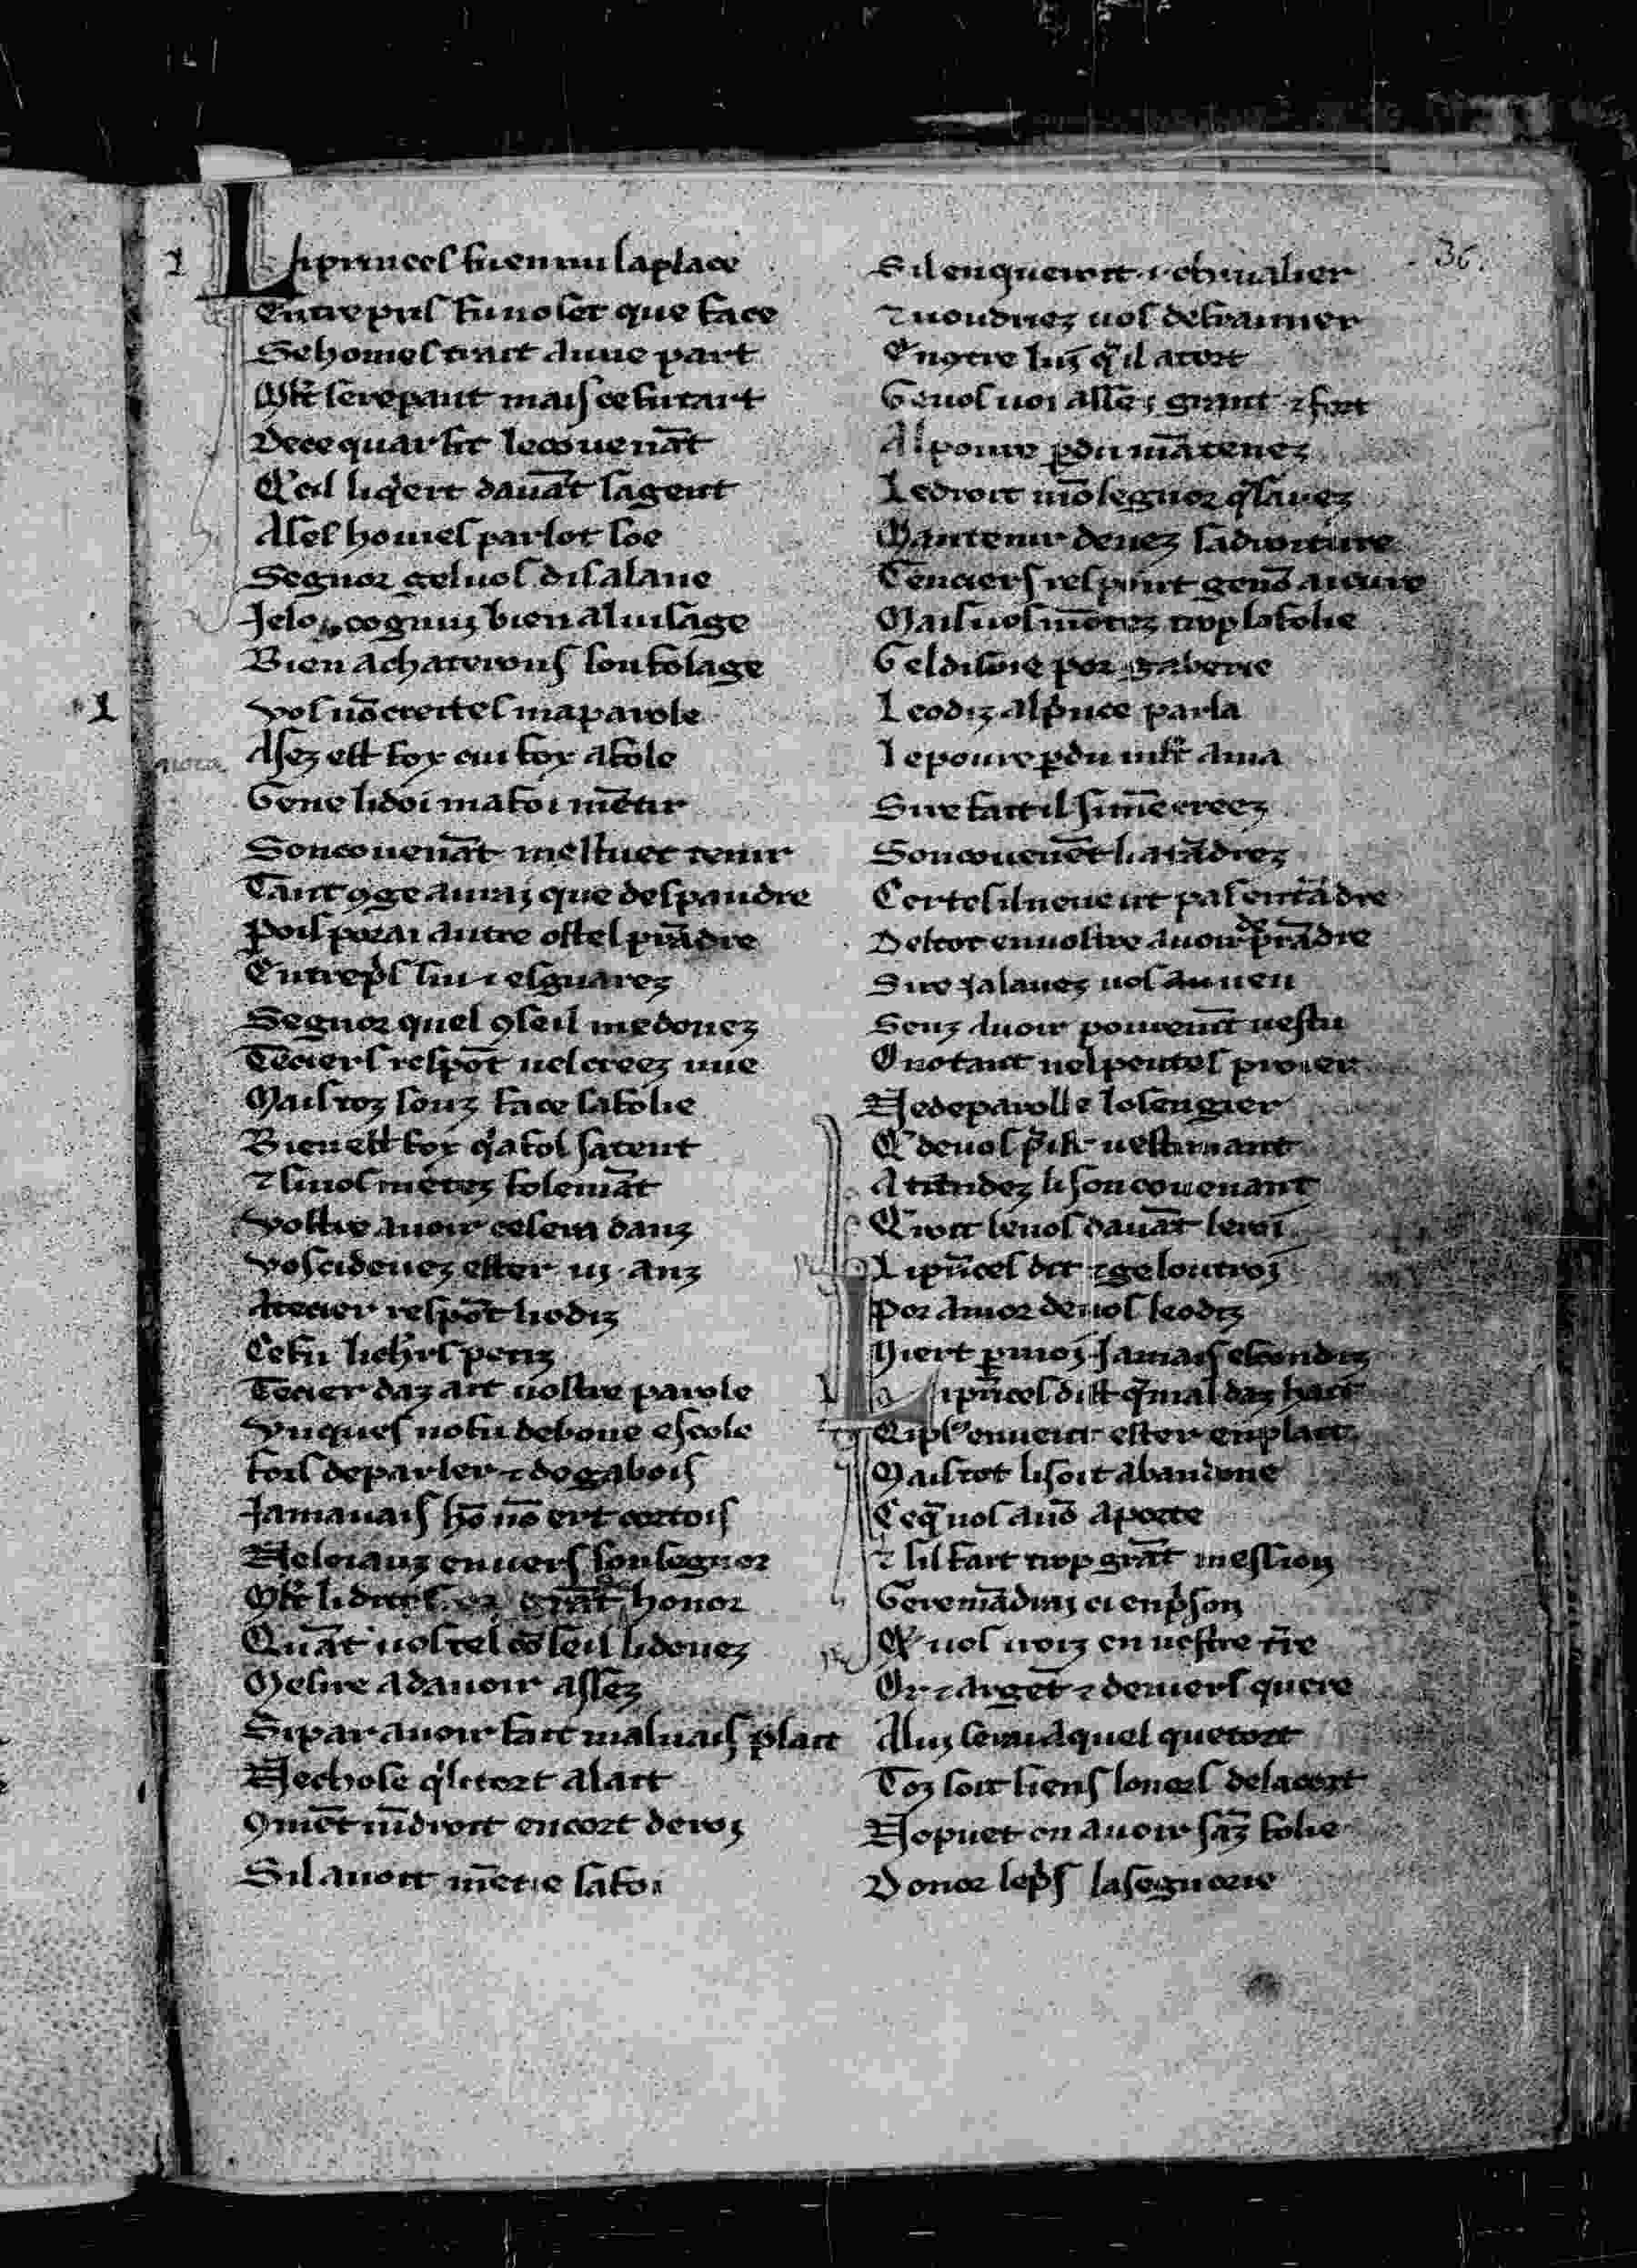 36.
Li princes fu enmi la place
Entrepris fu no set que face
Se homes trait a une part
Mlt se repant mais ce fu tart
De ce quar fit le couenāt
Qͥ cil liqͥert dauāt sa gent
A ses homes parlot soe
Segnor ge luos disalaue
Je lo cognuiz bien al uisage
Bien achaterons son folage
Vos nō creites ma parole
Asez est fox cui fox afole
Ge ne li doi ma foi mētir
Son couenāt mestuet tenir
Tant ꝯ ge aurai que despandre
Pois porai autre ostel prādre
Entrepͥs sui ⁊ esguarez
Segnor quel ꝯseil me donez
Teciers respōt nel creez mie
Mais toz souz face sa folie
Bien est fox qͥ a fol satent
⁊ si uos metez folemāt
Vostre auoir ce sera danz
Vos ci deuez ester .iij. anz
A tecier respōt li odiz
Ce fu li chrs periz
Tecier daz ait uostre parole
Vnques no fu de bone escole
Fors de parler ⁊ de gabois
Ja mauais hō nō ert cortois
Ne loiauz enuers son segnor
Mlt li dites grāt honor
Quāt uos tel cōseil li donez
Mesire a dauoir assez
Si par auoir fait maluais plait
Ne chose qͥ le tort a lait
ꝯmēt tīdroit en cort de roi
Sil auoit mētie sa foi
Sil enqueroit .i. cheualier
⁊ uoudriez uos desraimer
Enꝯtre luj qͥl a tort
Ge uos uoi assez grant ⁊ fort
Al poure p̱du mātenez
Le droit mō segnor qͥ sauez
Mantenir deuez sa droiture
Teciers respont ge nō ai cure
Mais uos mōtez trop la folie
Gel disoie por gaberie
Leodiz al prince parla
Le poure p̱du mlt ama
Sire fait il si mē creez
Son couenēt li atādrez
Certes il ne ueut pas entādre
De tot en uostre auoir prādre
Sire ja lauez uos au ueu
Senz auoir pouremēt uestu
Onc tant nel peutes proier
Ne de parolle losengier
Qͥ de uos preist uestimant
Atandez li son couenant
Qͥ roit leuos dauāt le roi
Li prīces dit ⁊ ge loutroi
Por amor de uos leodiz
Niert p̱ moi jamais escondiz
Li prīces dist qͥ mal daz hait
Qi plꝰ en ueut ester en plait
Mais tot li soit abandone
Ce qͥ uos auō aporte
⁊ sil fait trop grāt mession
Ge remādrai ci en pͥson
Qͥ uos iroiz en uestre tre
Or ⁊ argēt ⁊ deniers quere
A luj sera aquel que tort
Toz soit siens louers de la cort
No puet on auoir saz folie
Doner le pͥs la segnorie